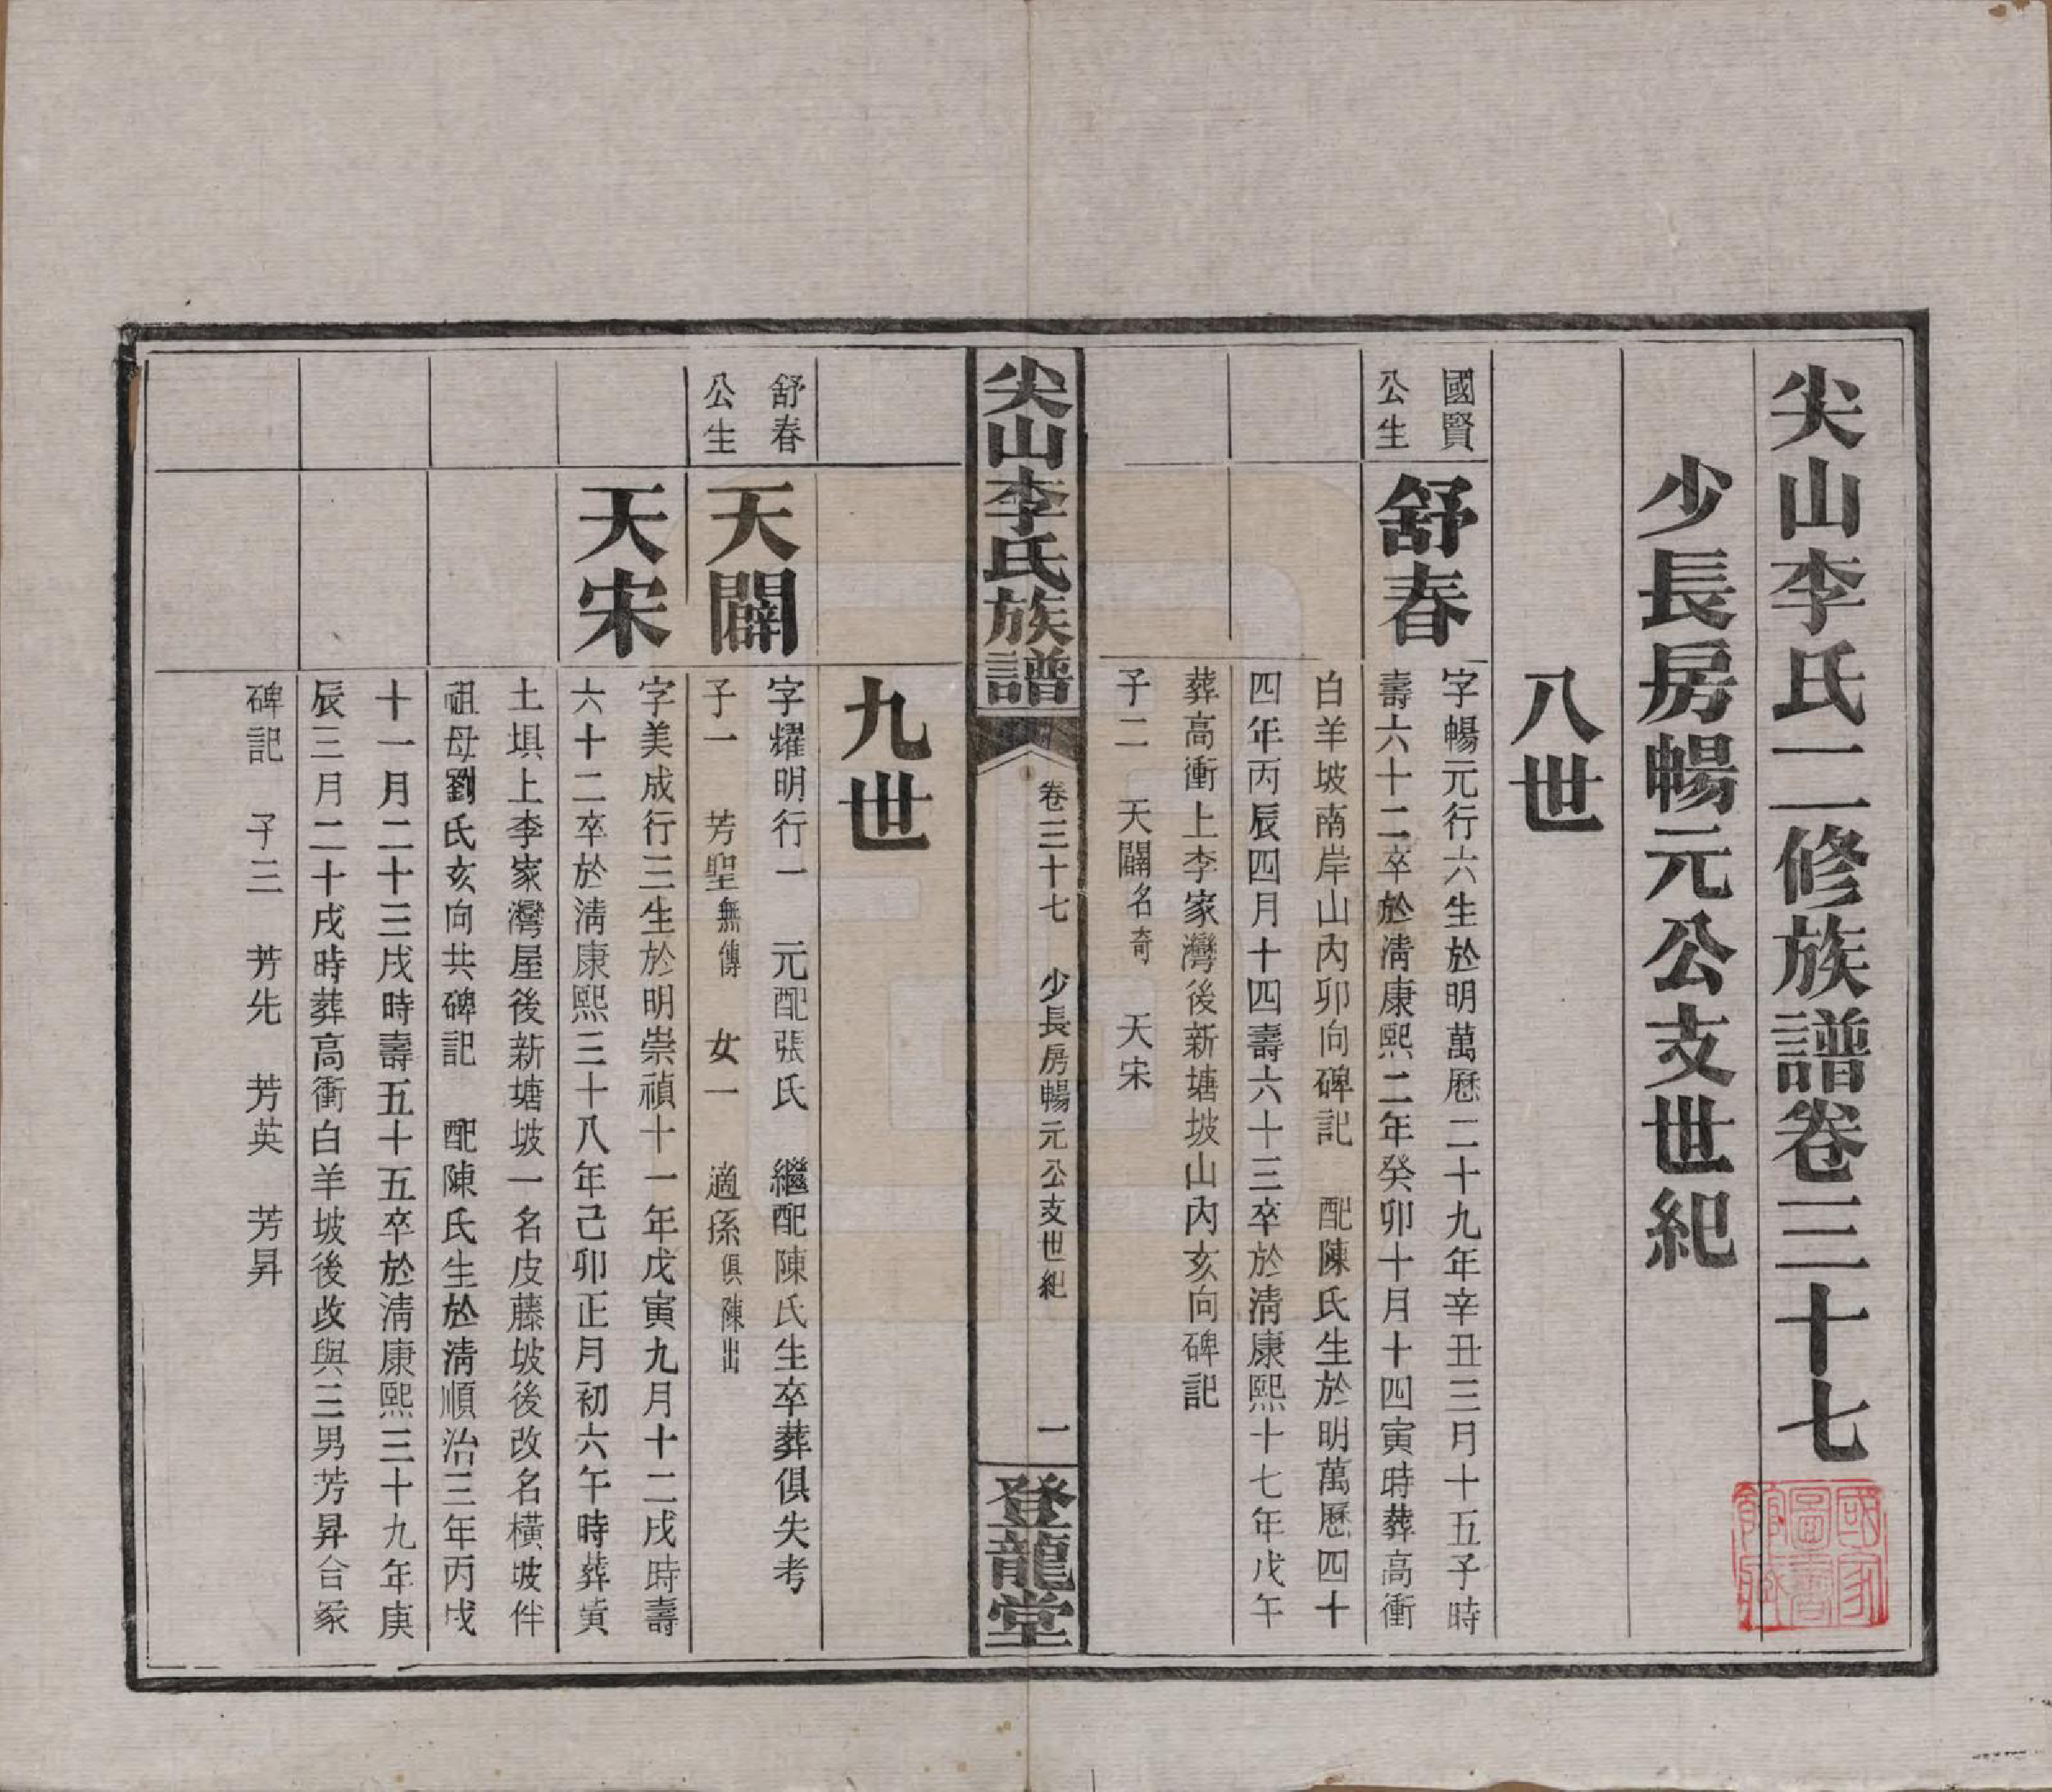 尖山李氏二修族譜卷三十七
少長房暢元公支世紀
八世
國賢
公生
舒春
字暢元行六生於明萬曆二十九年辛丑三月十五子時
壽六十二卒於清康熙二年癸卯十月十四寅時葬高衝
白羊坡南岸山內卯向碑記　配陳氏生於明萬曆四十
四年丙辰四月十四壽六十三卒於清康熙十七年戊午
葬高衝上李家灣後新塘坡山內亥向碑記
子二　天闢名奇　天宋
尖山李氏族譜
卷三十七　少長房暢元公支世紀
一
登龍堂
九世
舒春
公生
天闢
字燿明行一　元配張氏　繼配陳氏生卒葬俱失考
子一　芳聖無傳　女一　適孫俱陳出
天宋
字美成行三生於明崇禎十一年戊寅九月十二戌時壽
六十二卒於清康熙三十八年己卯正月初六午時葬黄
土埧上李家灣屋後新塘坡一名皮藤坡後改名橫坡伴
祖母劉氏亥向共碑記　配陳氏生於清順治三年丙戌
十一月二十三戌時壽五十五卒於清康熙三十九年庚
辰三月二十戌時葬高衝白羊坡後改與三男芳昇合冢
碑記　子三　芳先　芳英　芳昇
國家
圖書
館藏